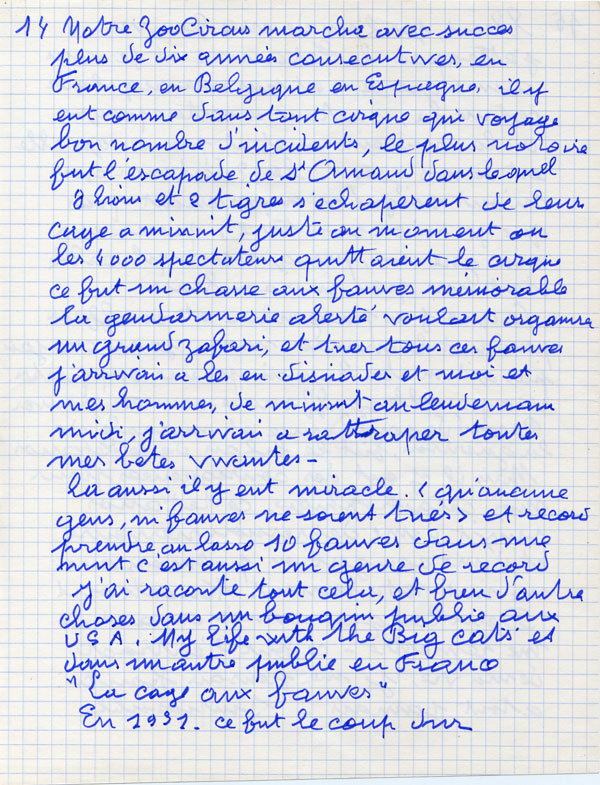 14 Notre ZooCircus marcha avec succes
plus de dix années consecutives, en
France, en Belgique en Espagne, il y
eut comme dans tout cirque qui voyage
bon nombre d'incidents, le plus notoire
fut l'éscapade de St Amand dans lequel
8 lions et 2 tigres s'echaperent de leur
cage a minuit, juste au moment ou
les 4000 spectateurs quittaient le cirque
ce fut un chasse aux fauves mémorable
la gendarmerie alerté voulait organiser
un grand zafari, et tuer tous ces fauves
j'arrivai a les en disuader et moi et
mes hommes, de minuit au lendemain
midi, j'arrivai a rattraper toutes
mes betes vivantes -
la aussi il y eut miracle. < qu'aucune
gens, ni fauves ne soient tués > et record
prendre au lasso 10 fauves dans une
nuit c'est aussi un genre de record
j'ai raconté tout cela, et bien d'autre
choses dans un bouquin publie aux
USA. My life with the Big cats et
dans un autre publie en France
"La cage aux fauves"
En 1931. ce fut le coup dur